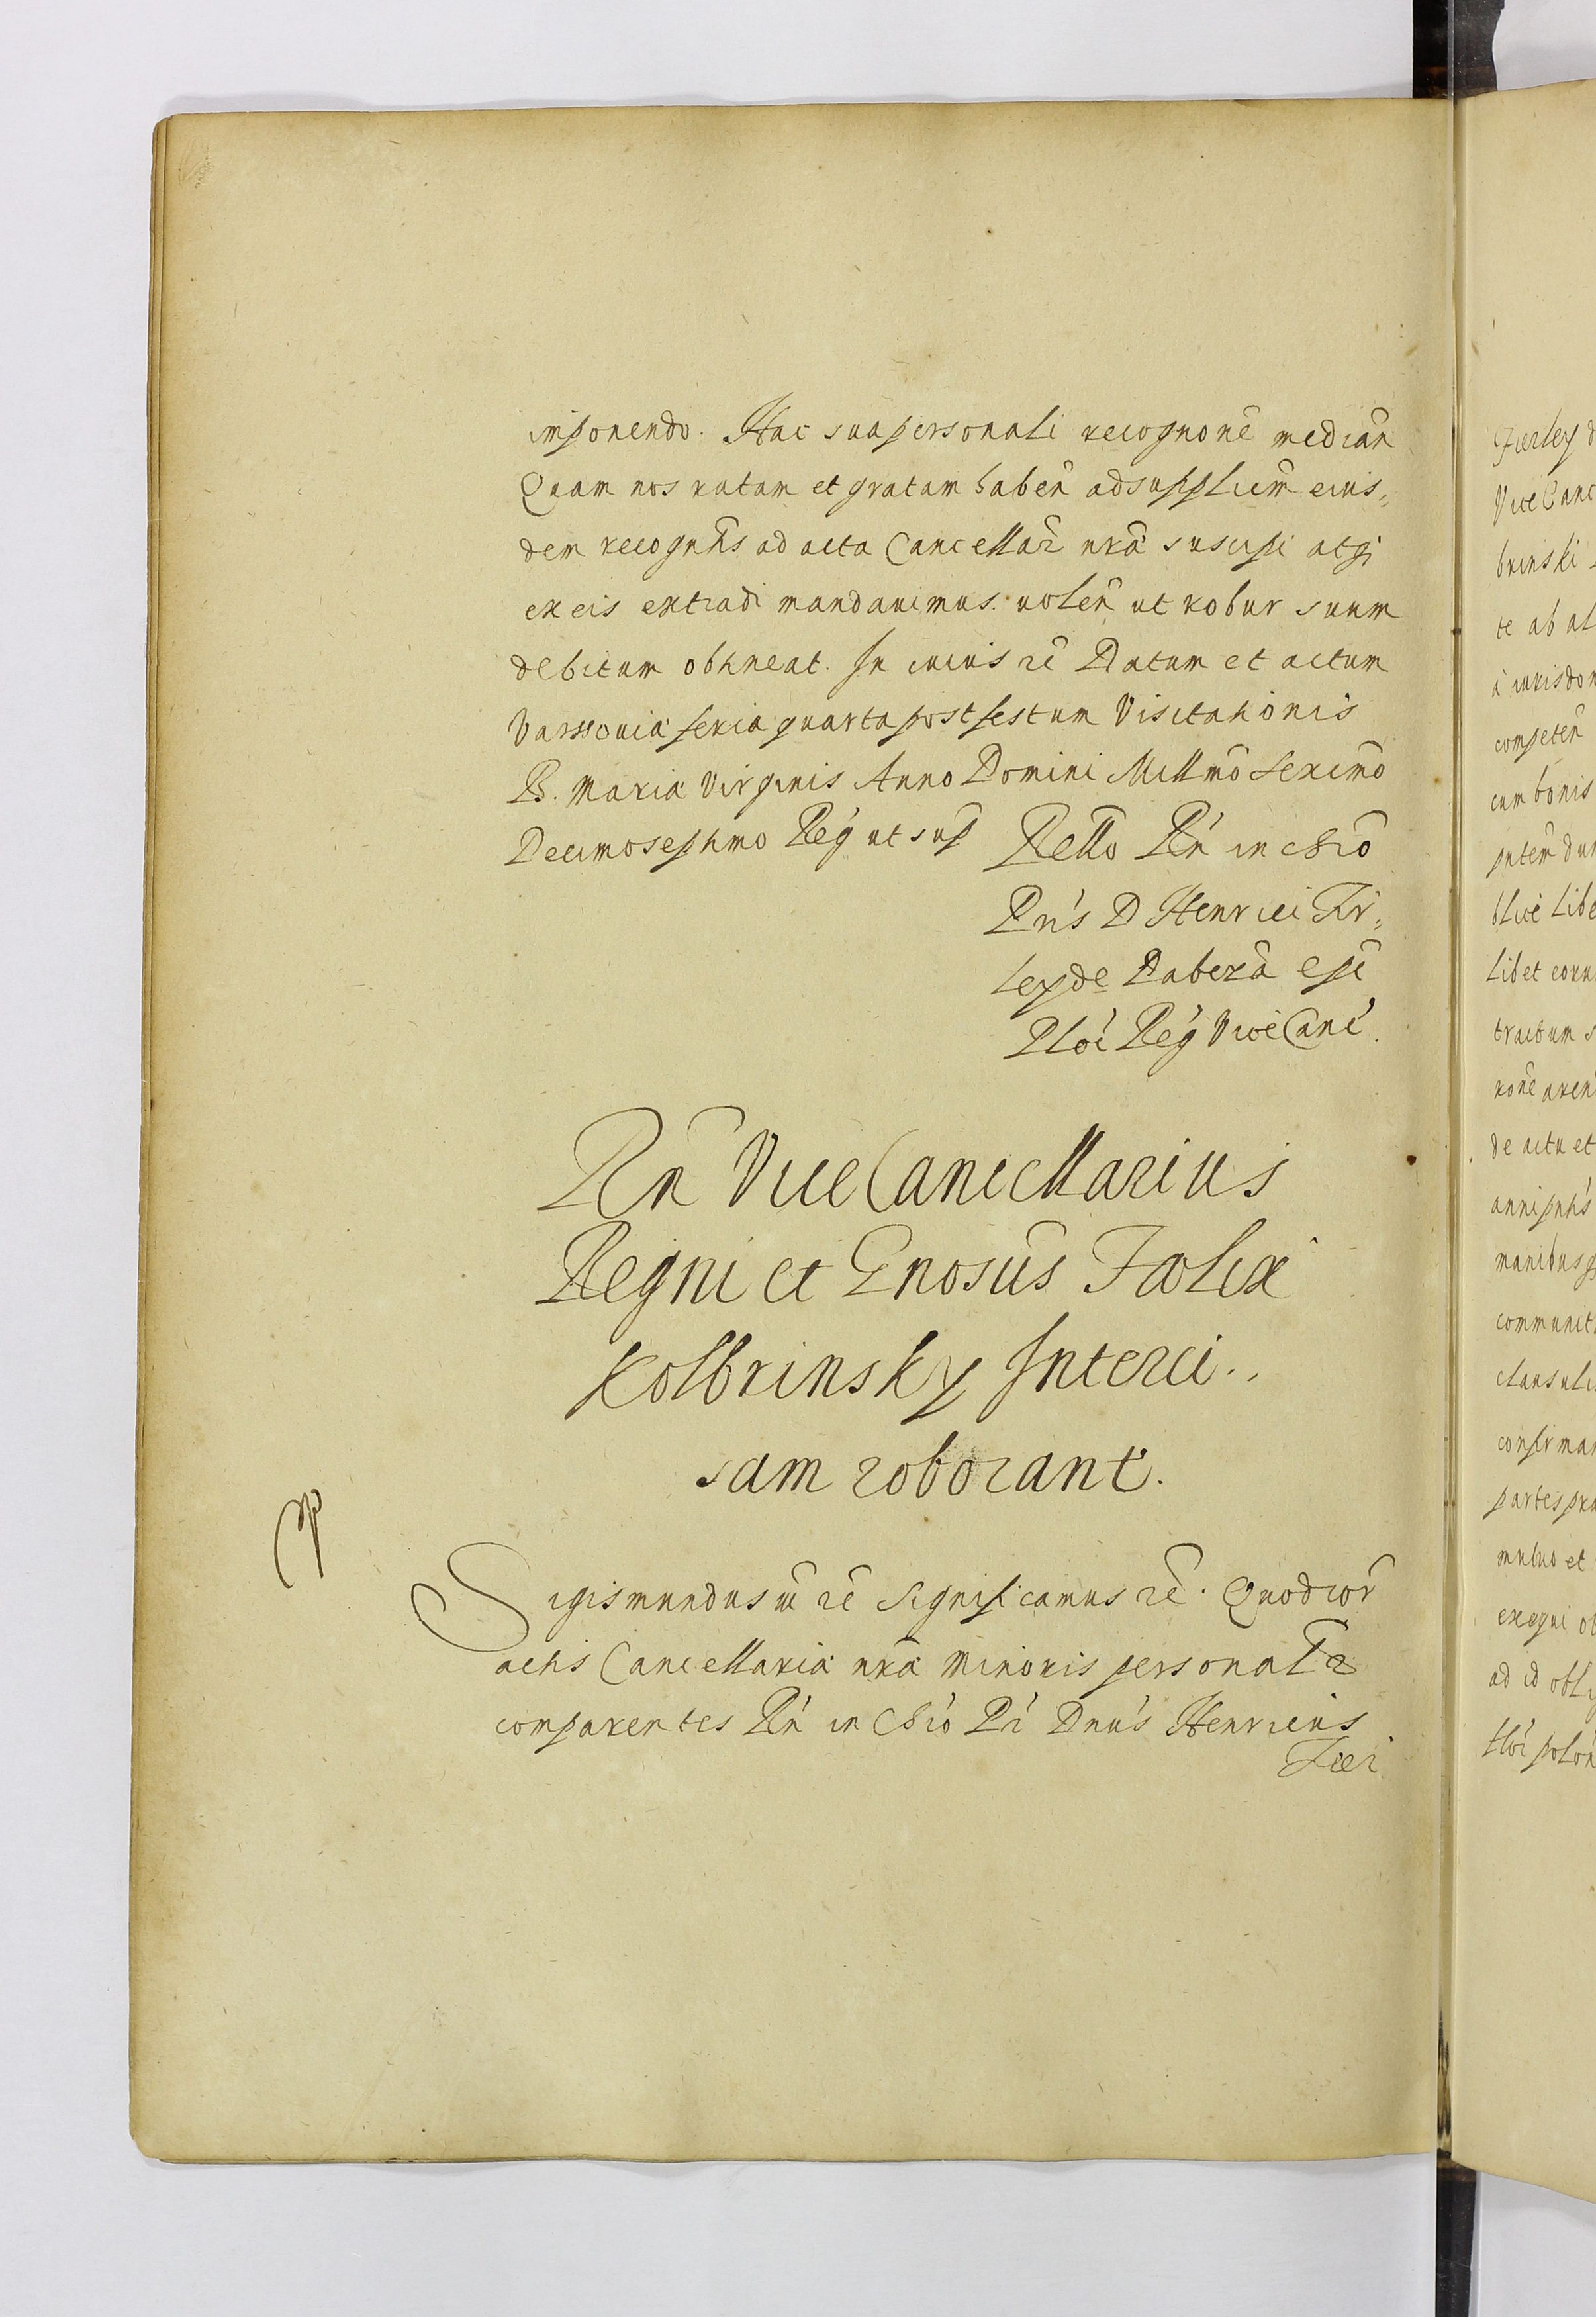 imponendo. Hac sua personali recognone median
Quam nos ratam et gratam haben ad supplicem eius,
dem recogntis ad acta Cancellar nra suscipi atq
ex eis extradi mandauimus. uolen ut robur suum
debitum obtineat. In cuius re Datum et actum
Varssouia feria quarta post festum Visitationis
B. Maria Virginis Anno Domini Millmo Sexcmo
Decimoseptimo Reg ut sup
Rello Rn in Chro
Pris D Henrici Fir,
ley de Dabera Epi
Ploc Reg ViceCanc.
Rn ViceCancellarius
Regni et Gnosus Foelix
Kolbrinsky Interci..
sam roborant.
Sigismundus III re Significamus re. Quod cor
actis Cancellaria nra Minoris personalr
comparentes Rn in Chro Pr Dnus Henricus
Fier
Fierley d
Vice Canc
brinski
te ab al
a iurisdon
competen
cum bonis
pntem dun
blice libe
libet coru
tractum s
rone aren
de actu et
anni pntis
manibus q
communit
clausuli
confirman
partes pra
mutuo et
exequi ob
ad id obli
tloc polon